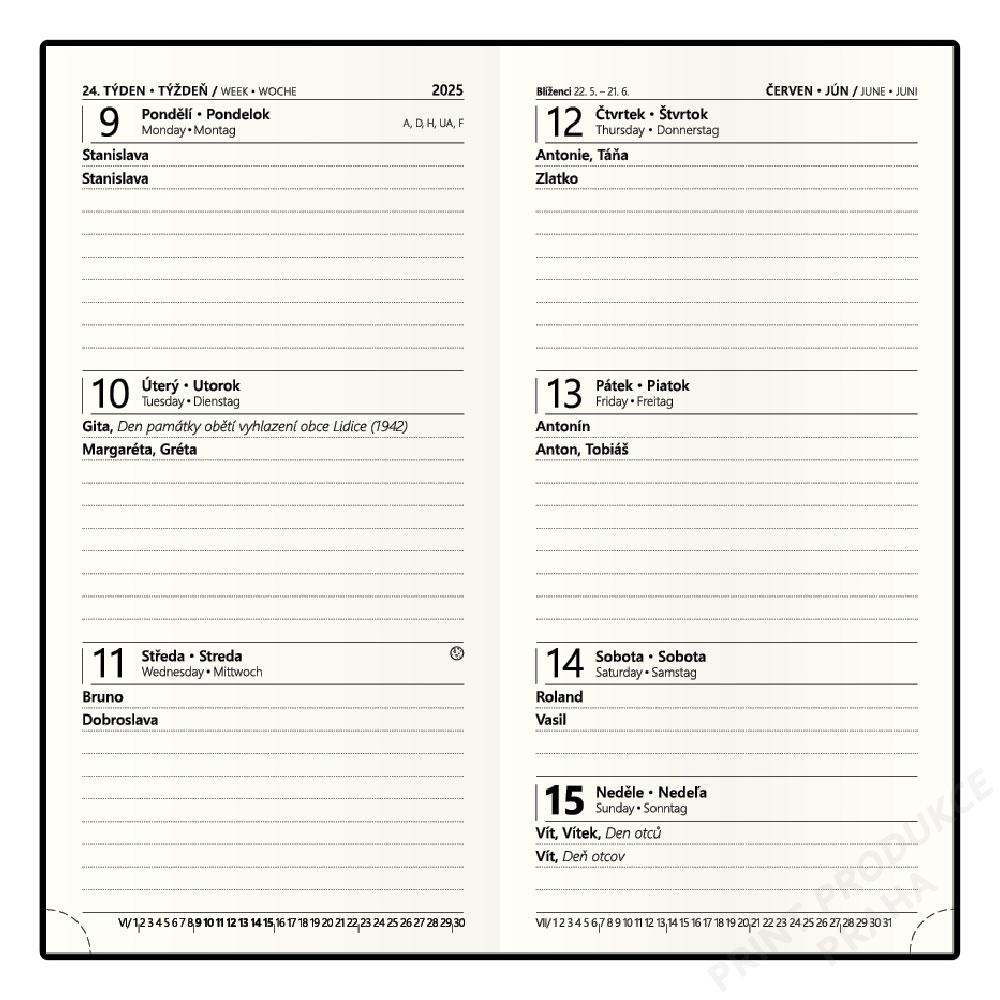 24. TÝDEN • TÝŽDEŇ / WEEK • WOCHE 2025
9 Pondělí • Pondelok
Monday • Montag
A, D, H, UA, F
Stanislava
Stanislava
10 Úterý • Utorok
Tuesday • Dienstag
Gita, Den památky obětí vyhlazení obce Lidice (1942)
Margaréta, Gréta
11 Středa • Streda
Wednesday • Mittwoch
Bruno
Dobroslava
VI/ 1 2 3 4 5 6 7 8 9 10 11 12 13 14 15 16 17 18 19 20 21 22 23 24 25 26 27 28 29 30
Blíženci 22. 5. – 21. 6. ČERVEN • JÚN / JUNE • JUNI
12 Čtvrtek • Štvrtok
Thursday • Donnerstag
Antonie, Táňa
Zlatko
13 Pátek • Piatok
Friday • Freitag
Antonín
Anton, Tobiáš
14 Sobota • Sobota
Saturday • Samstag
Roland
Vasil
15 Neděle • Nedeľa
Sunday • Sonntag
Vít, Vítek, Den otců
Vít, Deň otcov
VII/ 1 2 3 4 5 6 7 8 9 10 11 12 13 14 15 16 17 18 19 20 21 22 23 24 25 26 27 28 29 30 31
PRINT PRODUKCE
PRAHA